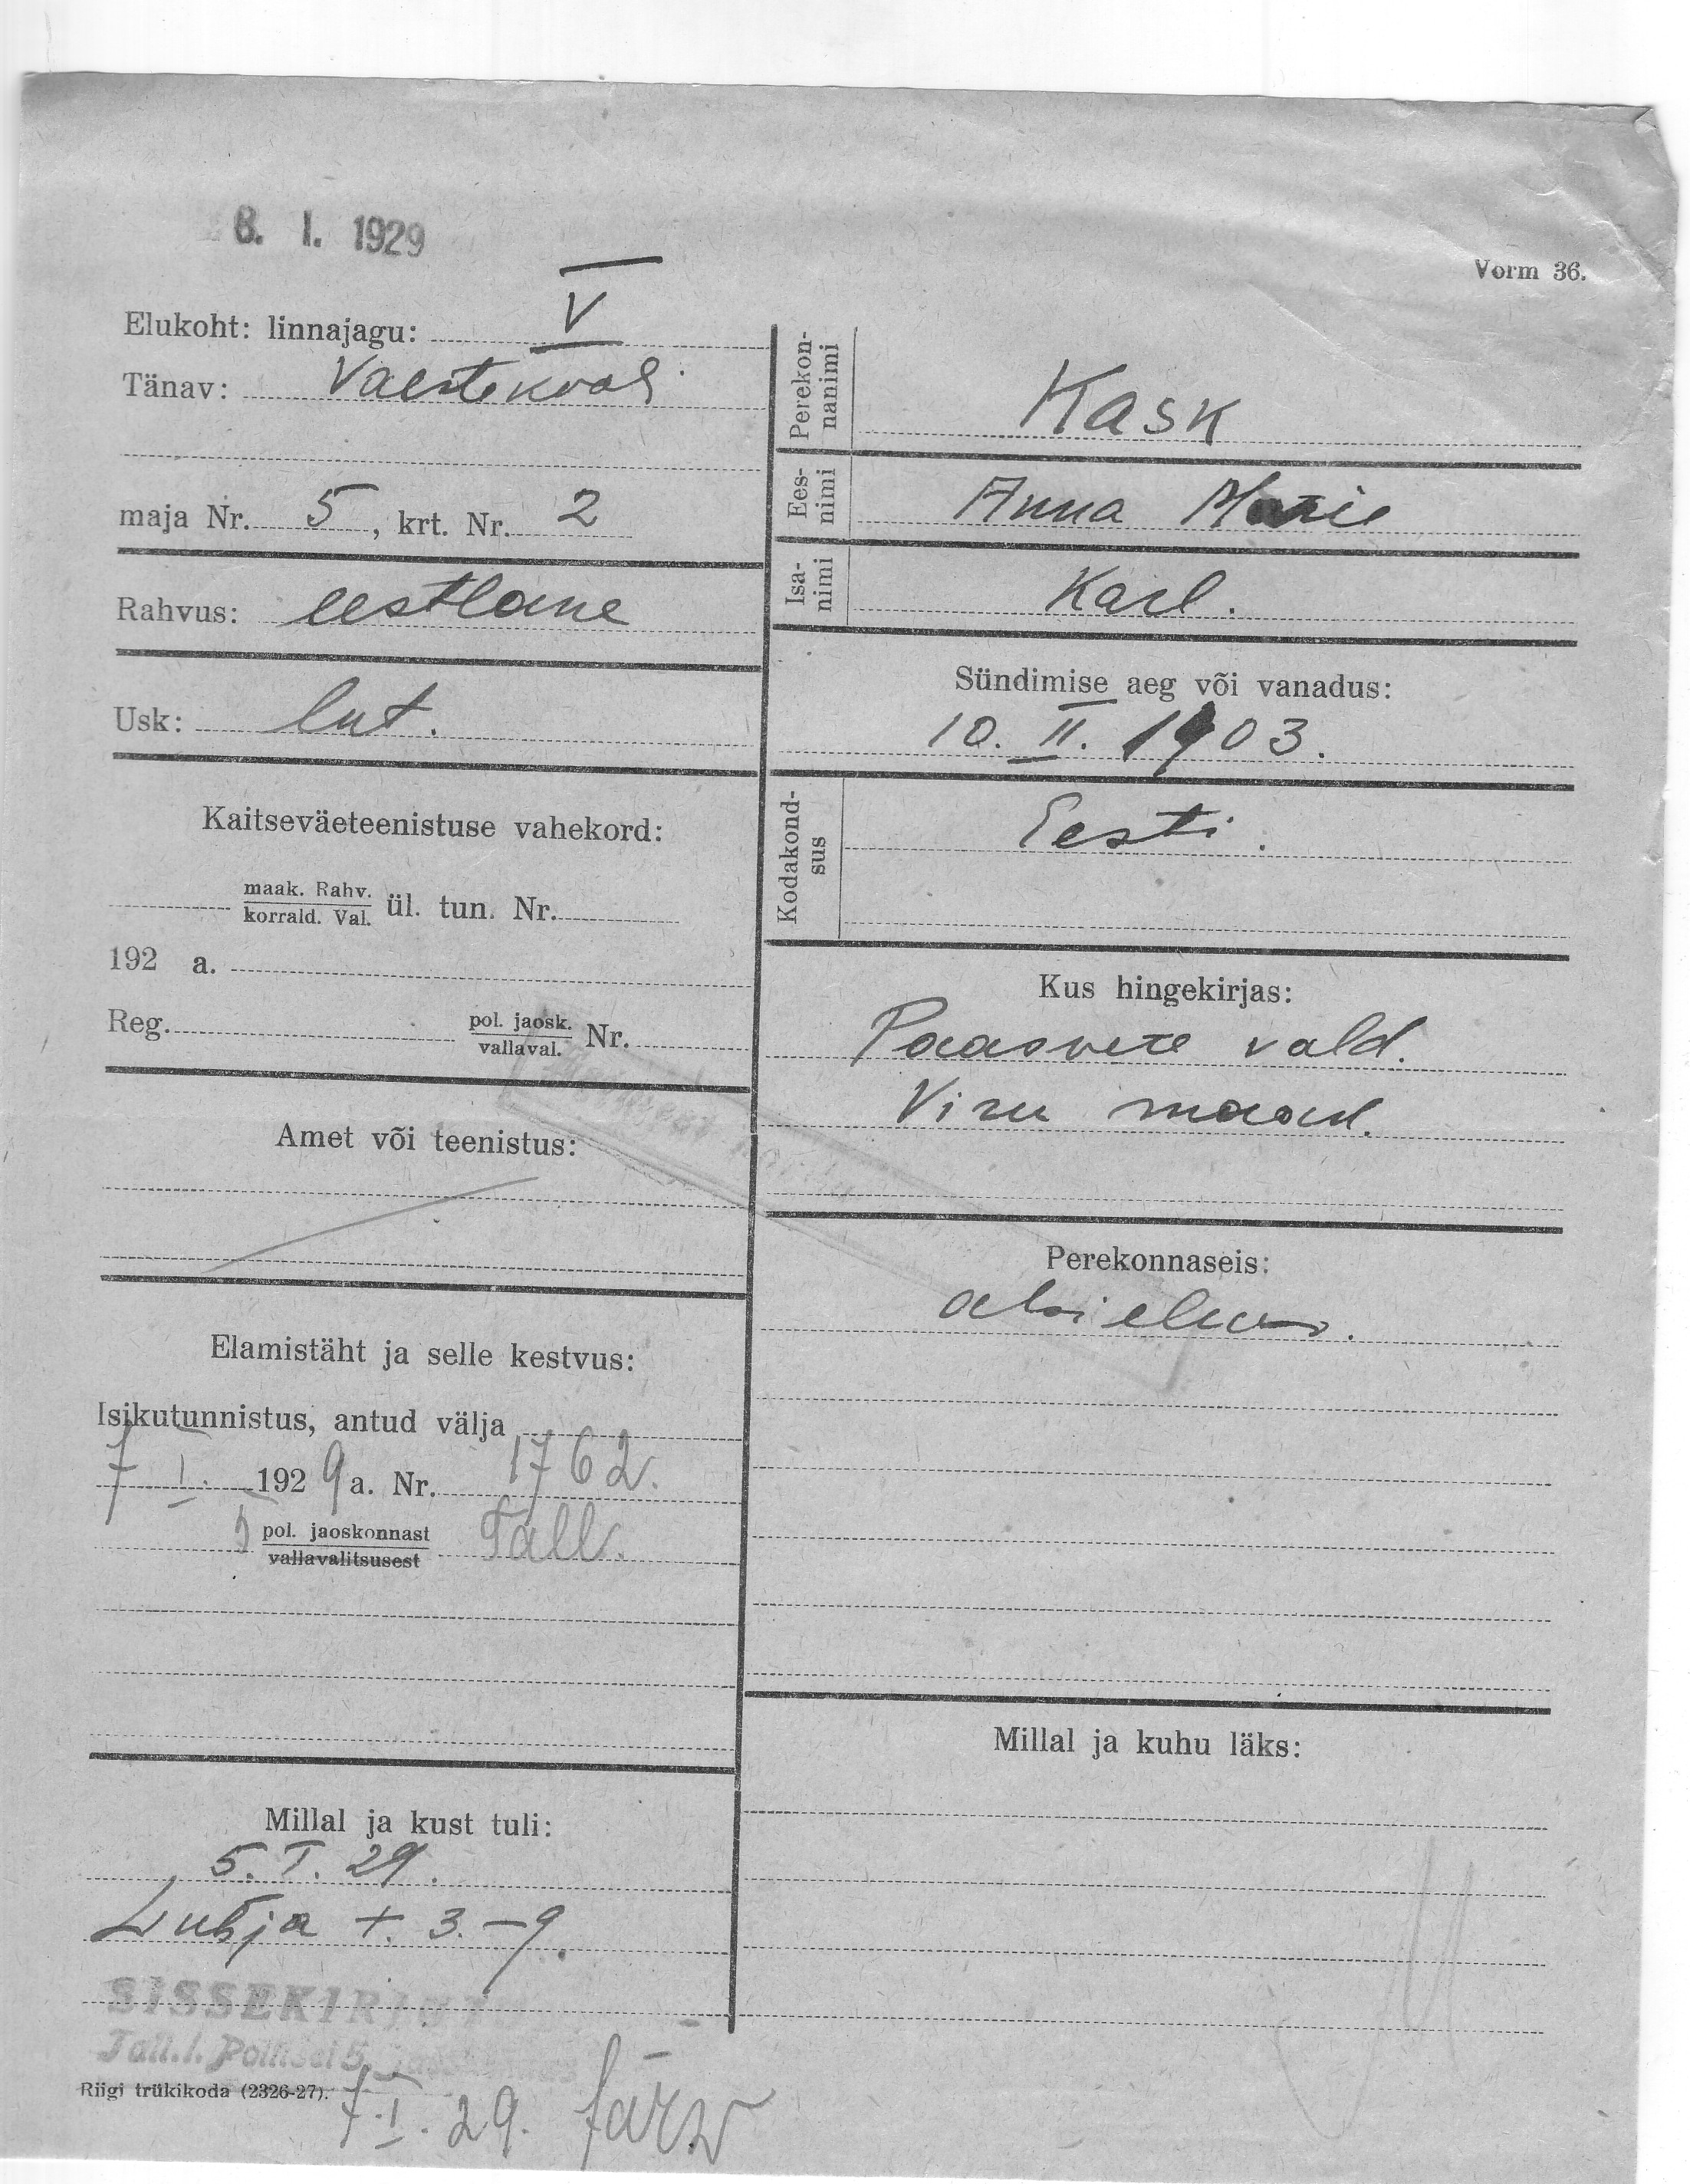 8. I. 1929
Vorm 36.
Elukoht: linnajagu: V
Tänav: Vaestekooli
maja Nr. 5, krt. Nr. 2
Rahvus: eestlane
Usk: lut.
Kaitseväeteenistuse vahekord:
maak. Rahv.
korrald. Val. ül. tun. Nr.
192 a.
Reg. pol. jaosk.
vallaval. Nr.
Amet või teenistus:
Elamistäht ja selle kestvus:
Isikutunnistus, antud välja
7 I. 1929 a. Nr. 1762.
5 pol. jaoskonnast Tall.
vallavalitsusest
Millal ja kust tuli:
5. I. 29.
Lubja t. 3.-9.
SISSEKIR
Tall.l. Politsei 5.
Riigi trükikoda (2326-27).
7.I.29. Järw
Perekon-
nanimi
Kask
Ees-
nimi
Anna Marie
Isa-
nimi
Karl.
Sündimise aeg või vanadus:
10. II. 1903.
Kodakond-
sus
Eesti.
Kus hingekirjas:
Paasvere vald.
Viru maak.
Perekonnaseis:
abielus.
Millal ja kuhu läks: